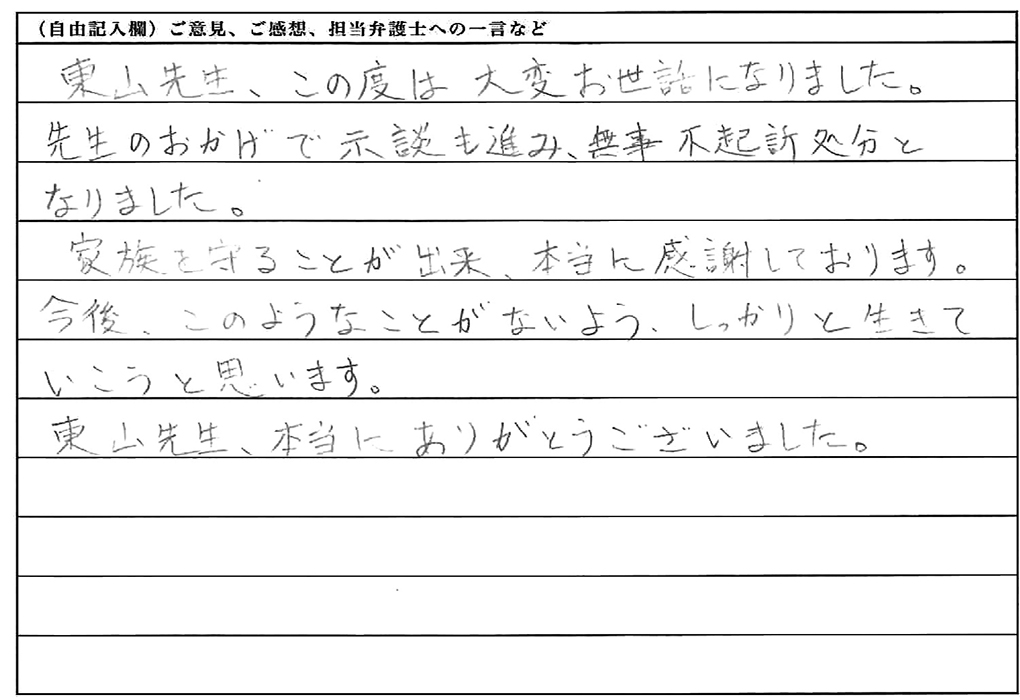 （自由記入欄）ご意見、ご感想、担当弁護士への一言など
東山先生、この度は大変お世話になりました。
先生のおかげで示談も進み、無事不起訴処分と
なりました。
家族を守ることが出来、本当に感謝しております。
今後、このようなことがないよう、しっかりと生きて
いこうと思います。
東山先生、本当にありがとうございました。